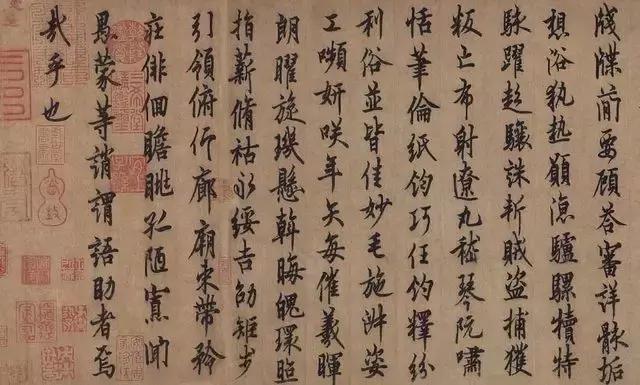 牋牒簡要顧答審詳骸垢
想浴執熱願涼驢騾犢特
駭躍超驤誅斬賊盜捕獲
叛亡布射遼丸嵇琴阮嘯
恬筆倫紙鈞巧任釣釋紛
利俗並皆佳妙毛施淑姿
工嚬妍笑年矢每催羲暉
朗曜旋璣懸斡晦魄環照
指薪脩祜永綏吉劭矩步
引領俯仰廊廟束帶矜
莊徘徊瞻眺孤陋寡聞
愚蒙等誚謂語助者焉
哉乎也